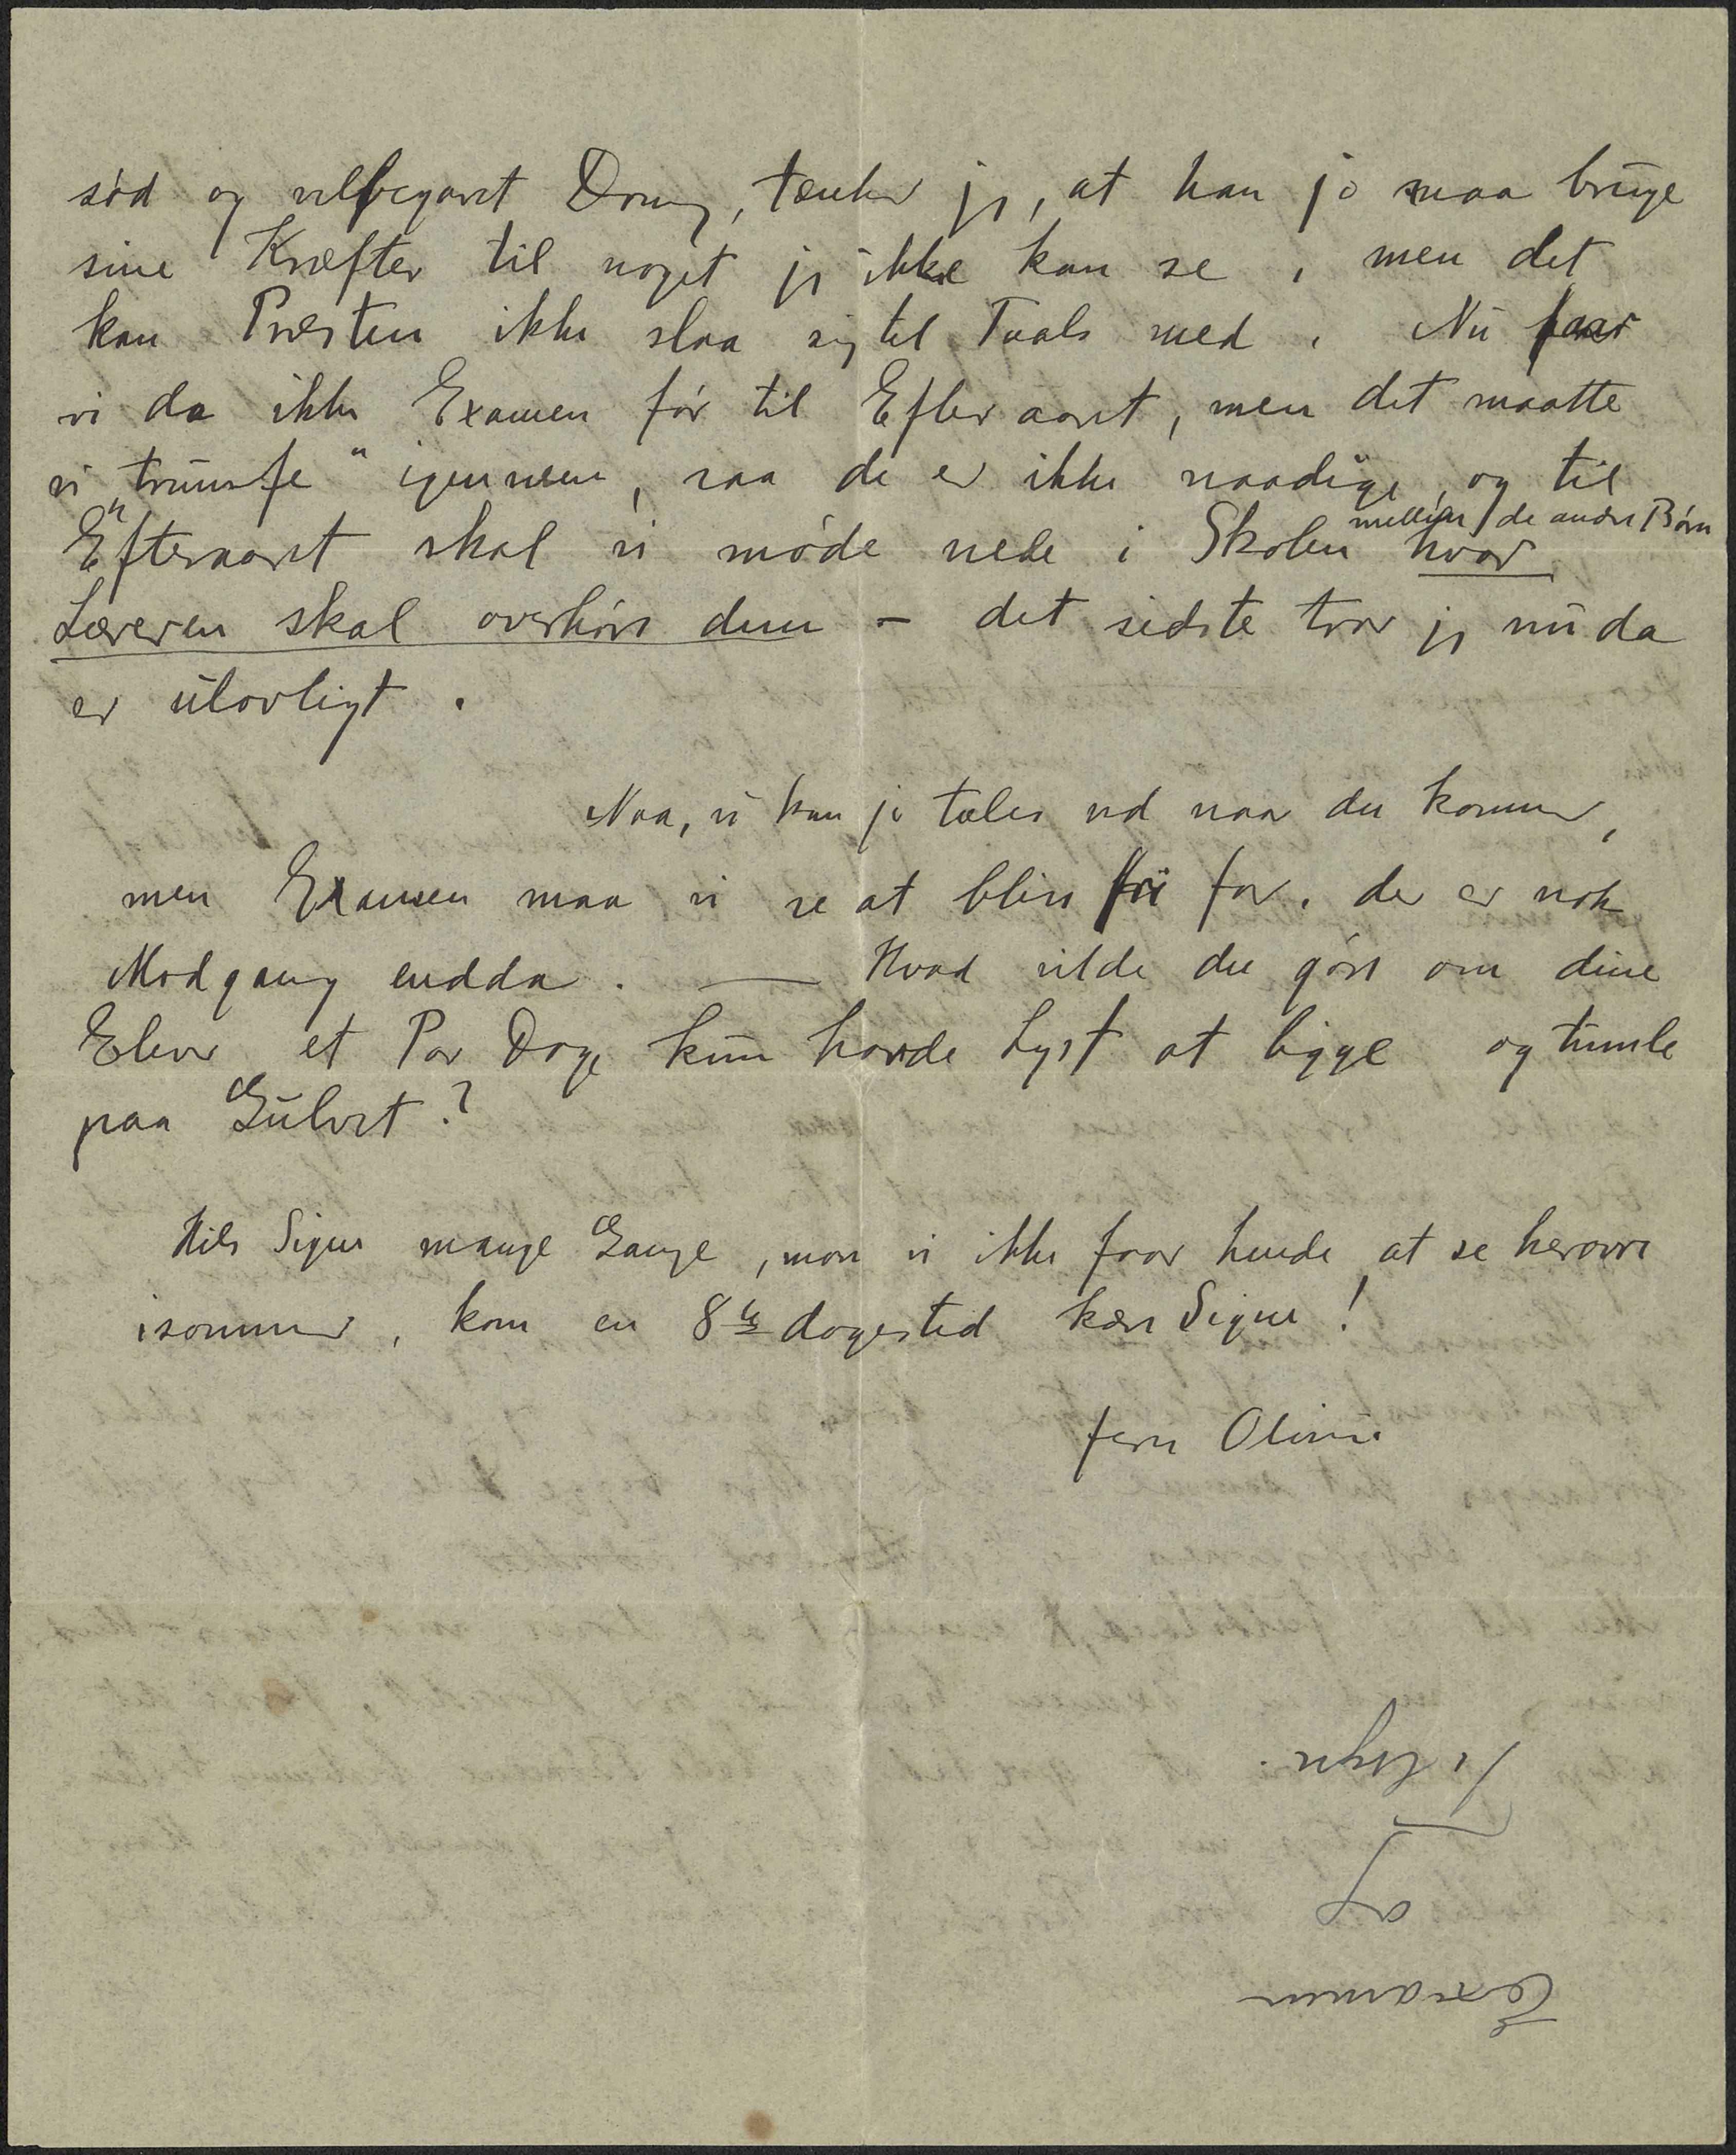 sød og velbegavet Dreng, tænker jeg, at han jo maa bruge
sine Kræfter til noget jeg ikke kan se, men det
kan Præsten ikke slaa sig til Taals med. Nu faar
vi da ikke Examen før til Efteraaret, men det maatte
vi „trumfe“ igennem, saa de er ikke naadige, og til
mellem de andre Børn
Efteraaret skal vi møde nede i Skolen hvor
Læreren skal overhøre dem – det sidste tror jeg nu da
er ulovligt.
Naa, vi kan jo tales ved naar du kommer,
men Examen maa vi se at blive fri for, der er nok
Modgang endda. — Hvad vilde du gøre om dine
Elever et Par Dage kun havde Lyst at ligge og tumle
paa Gulvet?
Hils Signe mange Gange, mon vi ikke faar hende at se herovre
isommer, kom en 8te dagestid kære Signe!
Jeres Olivia
Examen
og
Tilsyn.